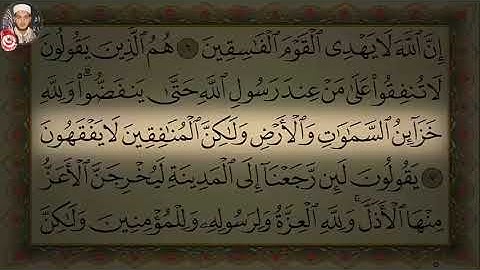 إِنَّ ٱللَّهَ لَا يَهْدِى ٱلْقَوْمَ ٱلْفَـٰسِقِينَ ٦ هُمُ ٱلَّذِينَ يَقُولُونَ
لَا تُنفِقُوا۟ عَلَىٰ مَنْ عِندَ رَسُولِ ٱللَّهِ حَتَّىٰ يَنفَضُّوا۟ ۗ وَلِلَّهِ
خَزَآئِنُ ٱلسَّمَـٰوَٰتِ وَٱلْأَرْضِ وَلَـٰكِنَّ ٱلْمُنَـٰفِقِينَ لَا يَفْقَهُونَ
٧ يَقُولُونَ لَئِن رَّجَعْنَآ إِلَى ٱلْمَدِينَةِ لَيُخْرِجَنَّ ٱلْأَعَزُّ
مِنْهَا ٱلْأَذَلَّ ۚ وَلِلَّهِ ٱلْعِزَّةُ وَلِرَسُولِهِۦ وَلِلْمُؤْمِنِينَ وَلَـٰكِنَّ